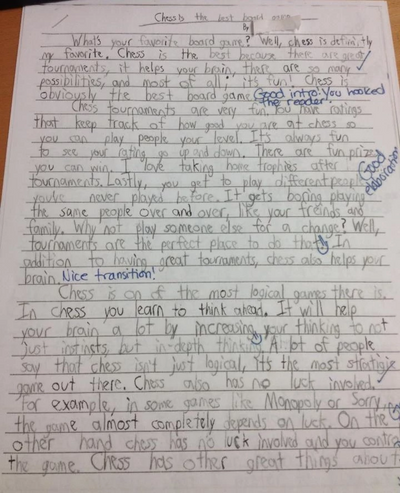 Chess Is the best board game
By
What's your favorite board game? Well, chess is definitly
my favorite. Chess is the best because there are great
tournaments, it helps your brain, there are so many
possibilities, and most of all, it's fun! Chess is
obviously the best board game. Good intro! You hooked
the reader!
Chess tournaments are very fun. You have ratings
that keep track of how good you are at chess so
you can play people your level. It's always fun
to see your rating go up and down. There are fun prizes
you can win. I love taking home trophies after
tournaments. Lastly, you get to play different people
you've never played before. It gets boring playing
the same people over and over, like your friends and
family. Why not play someone else for a change? Well,
tournaments are the perfect place to do that! In
addition to having great tournaments, chess also helps your
brain. Nice transition!
Good elaboration
Chess is on of the most logical games there is.
In chess you learn to think ahead. It will help
your brain a lot by increasing your thinking to not
just instincts, but in-depth thinking. A lot of people
say that chess isn't just logical, it's the most strategic
game out there. Chess also has no luck involved.
For example, in some games like Monopoly or Sorry,
the game almost completely depends on luck. On the
other hand chess has no luck involved and you control
the game. Chess has other great things about